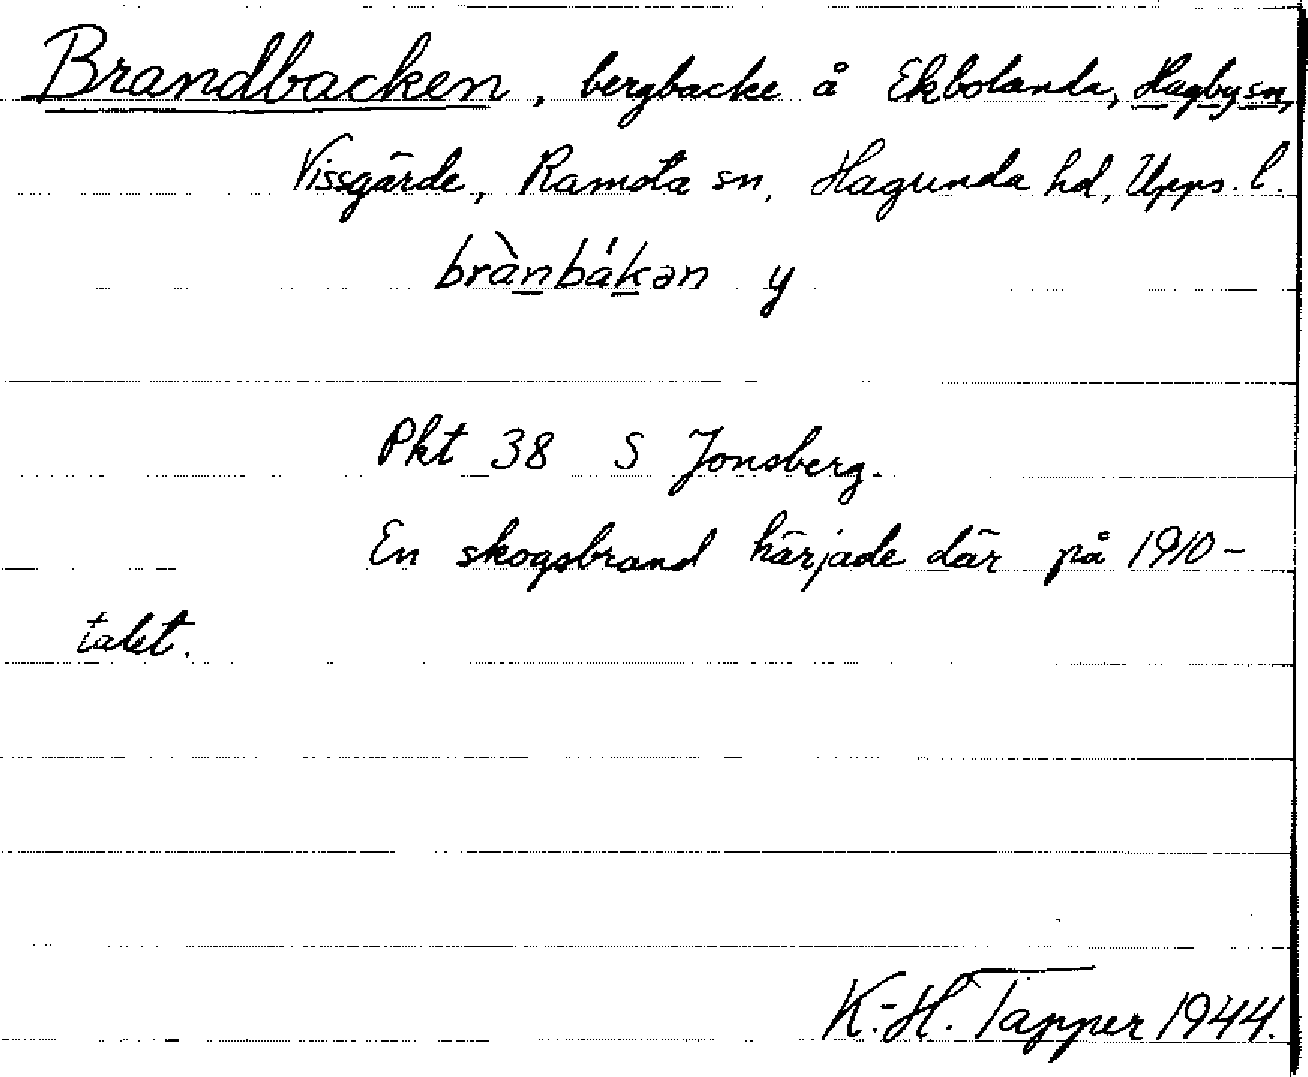 Brandbacken, bergbacke å Ekbolanda, Hagby sn,
Vissgärde, Ramsta sn, Hagunda hd, Upps. l.
brànbákən y
Pkt 38 S Jonsberg.
En skogsbrand härjade där på 1910-
talet.
K.-H. Tapper 1944.